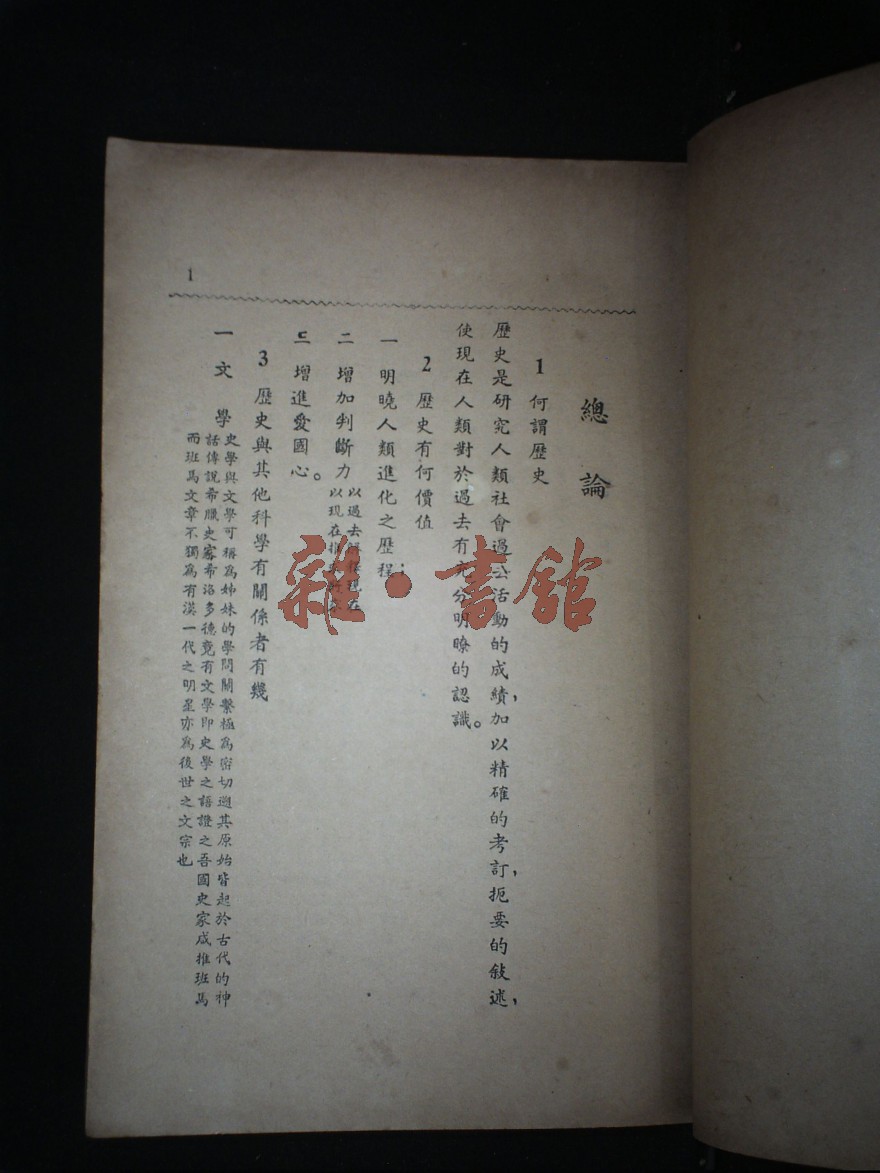 總論
1 何謂歷史
歷史是研究人類社會過去活動的成績，加以精確的考訂，扼要的敍述，
使現在人類對於過去有充分明瞭的認識。
2 歷史有何價值
一 明曉人類進化之歷程
二 增加判斷力 以過去解釋現在
以現在推
三 增進愛國心。
3 歷史與其他科學有關係者有幾
一 文學 史學與文學可稱為姊妹的學問關繫極為密切遡其原始皆起於古代的神
話傳說希臘史家希洛多德竟有文學即史學之語證之吾國史家咸推班馬
而班馬文章不獨為有漢一代之明星亦為後世之文宗也
1
雜·書館